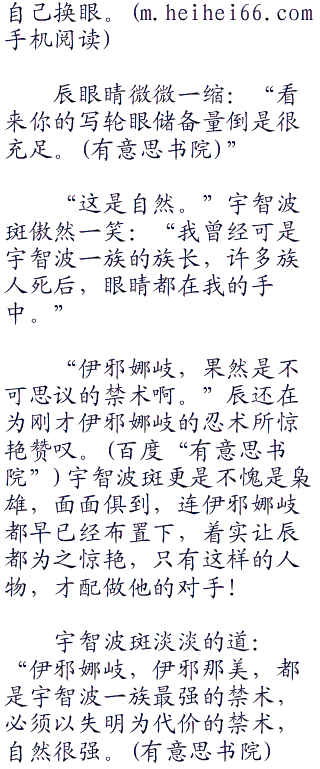 自己换眼。(m.heihei66.com
手机阅读)
辰眼睛微微一缩：“看
来你的写轮眼储备量倒是很
充足。(有意思书院)”
“这是自然。”宇智波
斑傲然一笑：“我曾经可是
宇智波一族的族长，许多族
人死后，眼睛都在我的手
中。”
“伊邪娜岐，果然是不
可思议的禁术啊。”辰还在
为刚才伊邪娜岐的忍术所惊
艳赞叹。(百度“有意思书
院”)宇智波斑更是不愧是枭
雄，面面俱到，连伊邪娜岐
都早已经布置下，着实让辰
都为之惊艳，只有这样的人
物，才配做他的对手！
宇智波斑淡淡的道：
“伊邪娜岐，伊邪那美，都
是宇智波一族最强的禁术，
必须以失明为代价的禁术，
自然很强。(有意思书院)